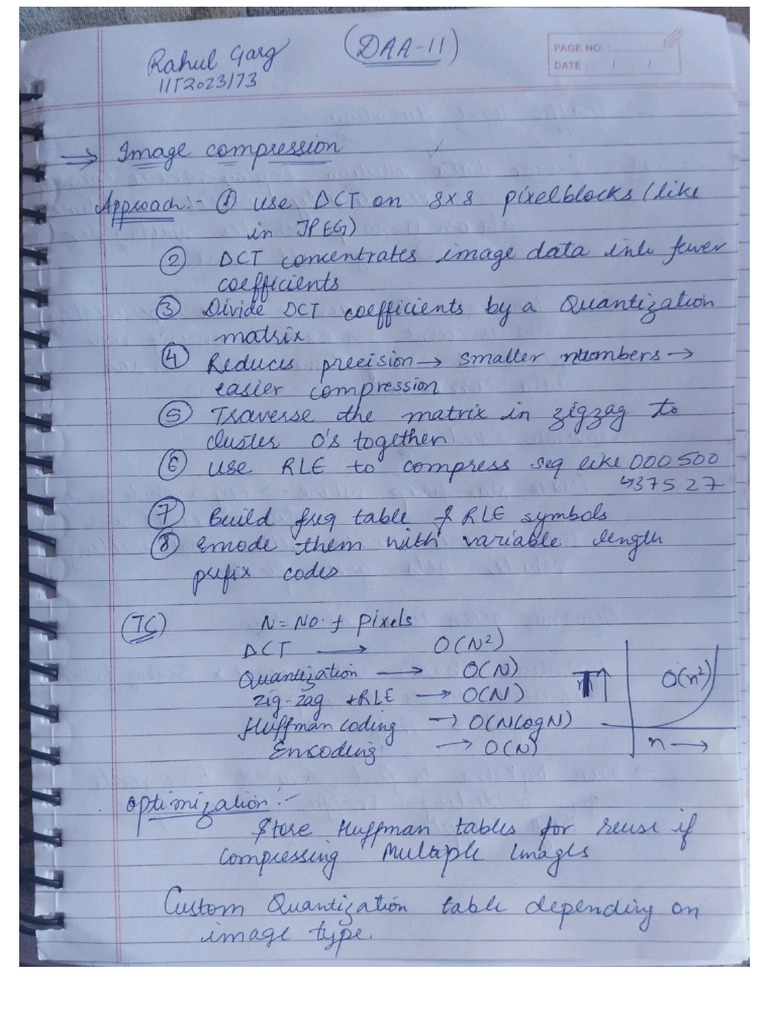 Rahul Garg
(DAA-11)
IIT2023173
PAGE NO.:
DATE: / /
⇒ Image compression
Approach:- ① Use DCT on 8x8 pixelblocks (like
in JPEG)
② DCT concentrates image data into fewer
coefficients
③ Divide DCT coefficients by a Quantization
matrix
④ Reduces precision → smaller numbers →
easier compression
⑤ Traverse the matrix in zigzag to
cluster 0's together
⑥ Use RLE to compress seq like 000500
↳37527
⑦ Build freq table of RLE symbols
⑧ Emode them with variable length
prefix codes
(TC) N = No. of Pixels
DCT → O(N²)
Quantization → O(N)
Zig-zag + RLE → O(N)
Huffman coding → O(NlogN)
Encoding → O(N)
T ↑ O(n²)
n →
Optimization:-
Store Huffman tables for reuse if
compressing Multiple Images
Custom Quantization table depending on
image type.